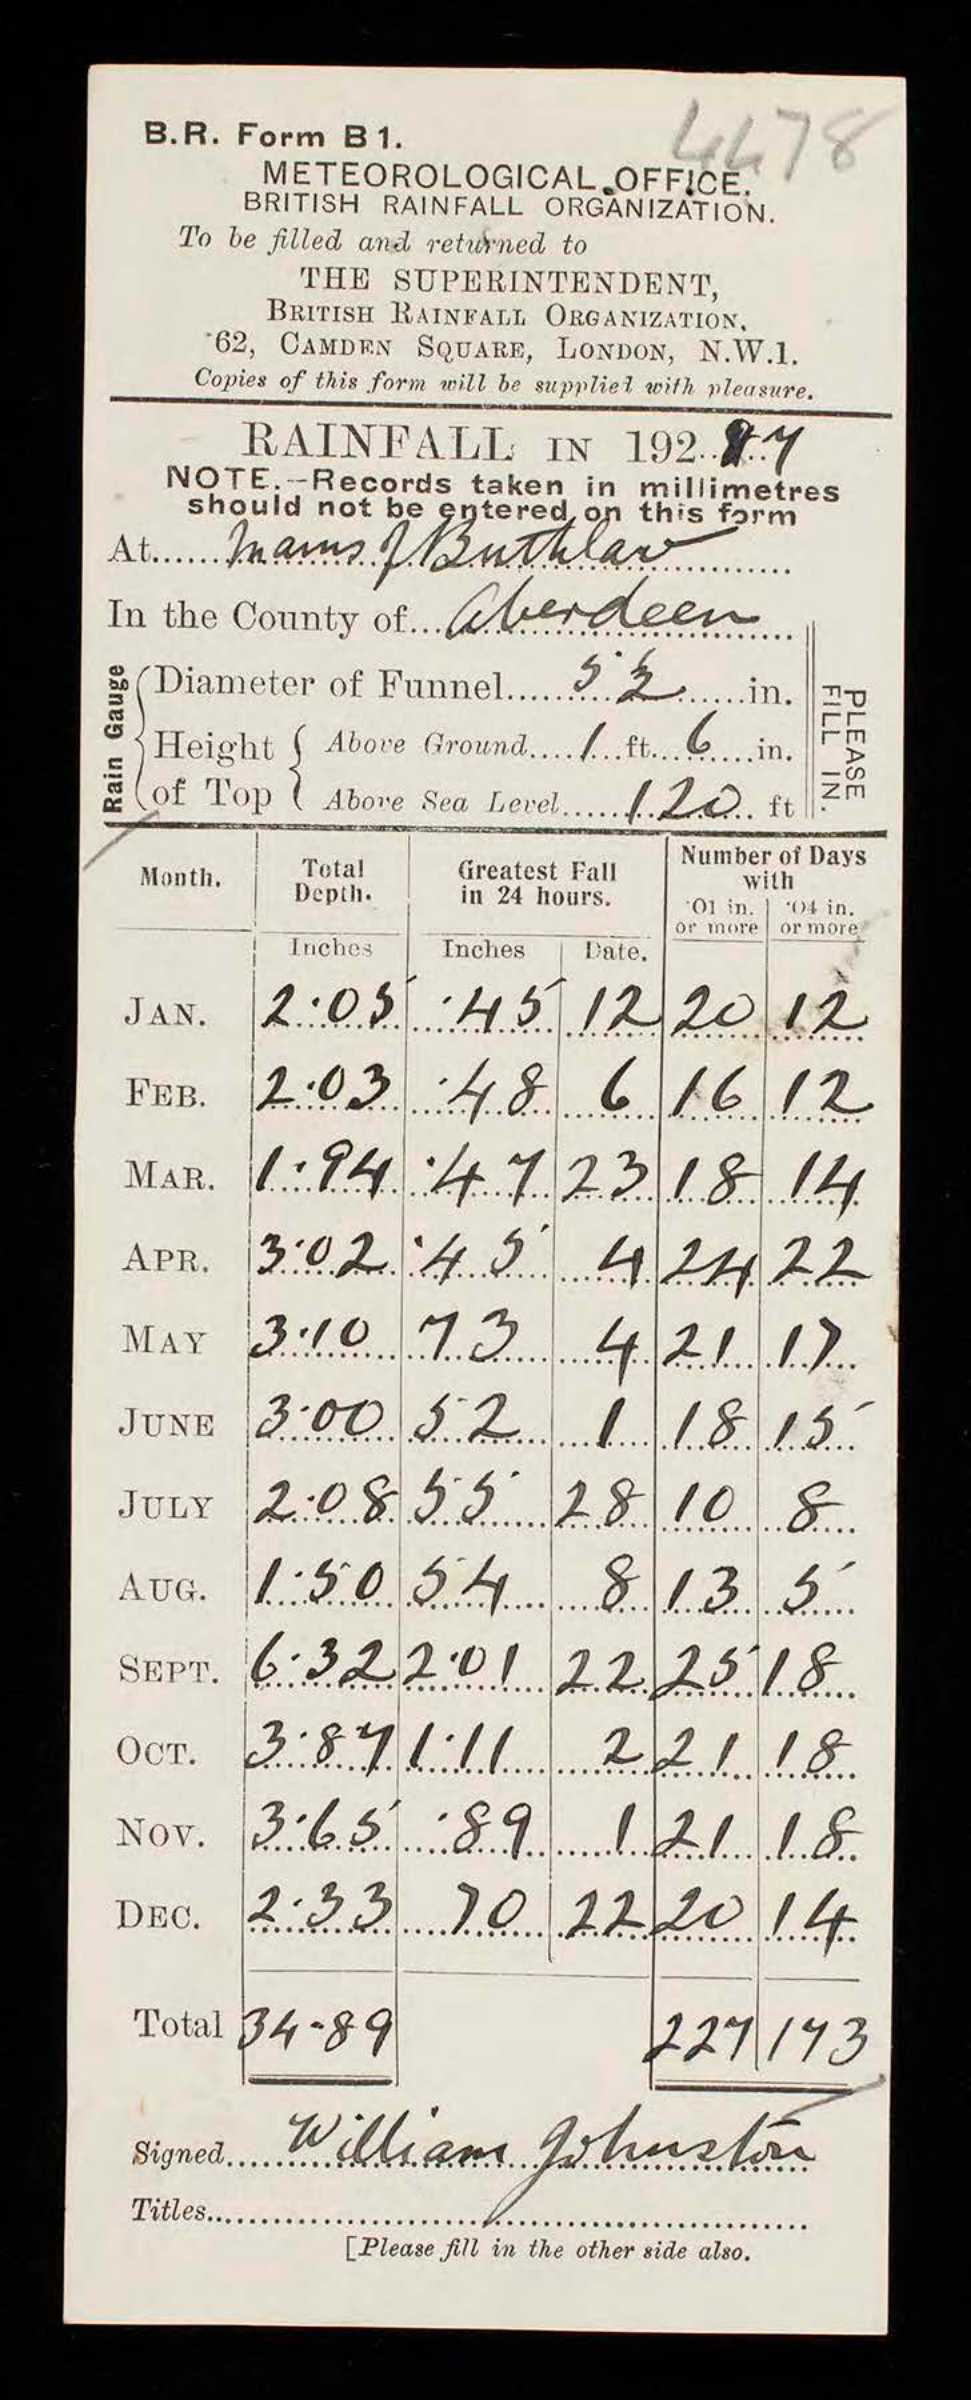 4478
B.R. Form B 1.
METEOROLOGICAL OFFICE.
BRITISH RAINFALL ORGANIZATION.
To be filled and returned to
THE SUPERINTENDENT,
BRITISH RAINFALL ORGANIZATION,
62, CAMDEN SQUARE, LONDON, N.W.1.
Copies of this form will be supplied with pleasure.
RAINFALL IN 192..7
NOTE.—Records taken in millimetres
should not be entered on this form
At......Mains of Buthlaw
In the County of...Aberdeen
Rain Gauge
Diameter of Funnel......5 in.
Height of Top
Above Ground....1 ft. 6 in.
Above Sea Level......120 ft
PLEASE FILL IN.
Month. Total Depth. Greatest Fall in 24 hours. Number of Days with
·01 in. or more ·04 in. or more
Inches Inches Date.
JAN. 2·05 ·45 12 20 12
FEB. 2·03 ·48 6 16 12
MAR. 1·94 ·47 23 18 14
APR. 3·02 ·45 4 24 22
MAY 3·10 73 4 21 17
JUNE 3·00 52 1 18 15
JULY 2·08 55 28 10 8
AUG. 1·50 54 8 13 5
SEPT. 6·32 2·01 22 25 18
OCT. 3·87 1·11 2 21 18
NOV. 3·65 ·89 1 21 18
DEC. 2·33 70 22 20 14
Total 34·89 227 173
Signed....William Johnston
Titles....
[Please fill in the other side also.